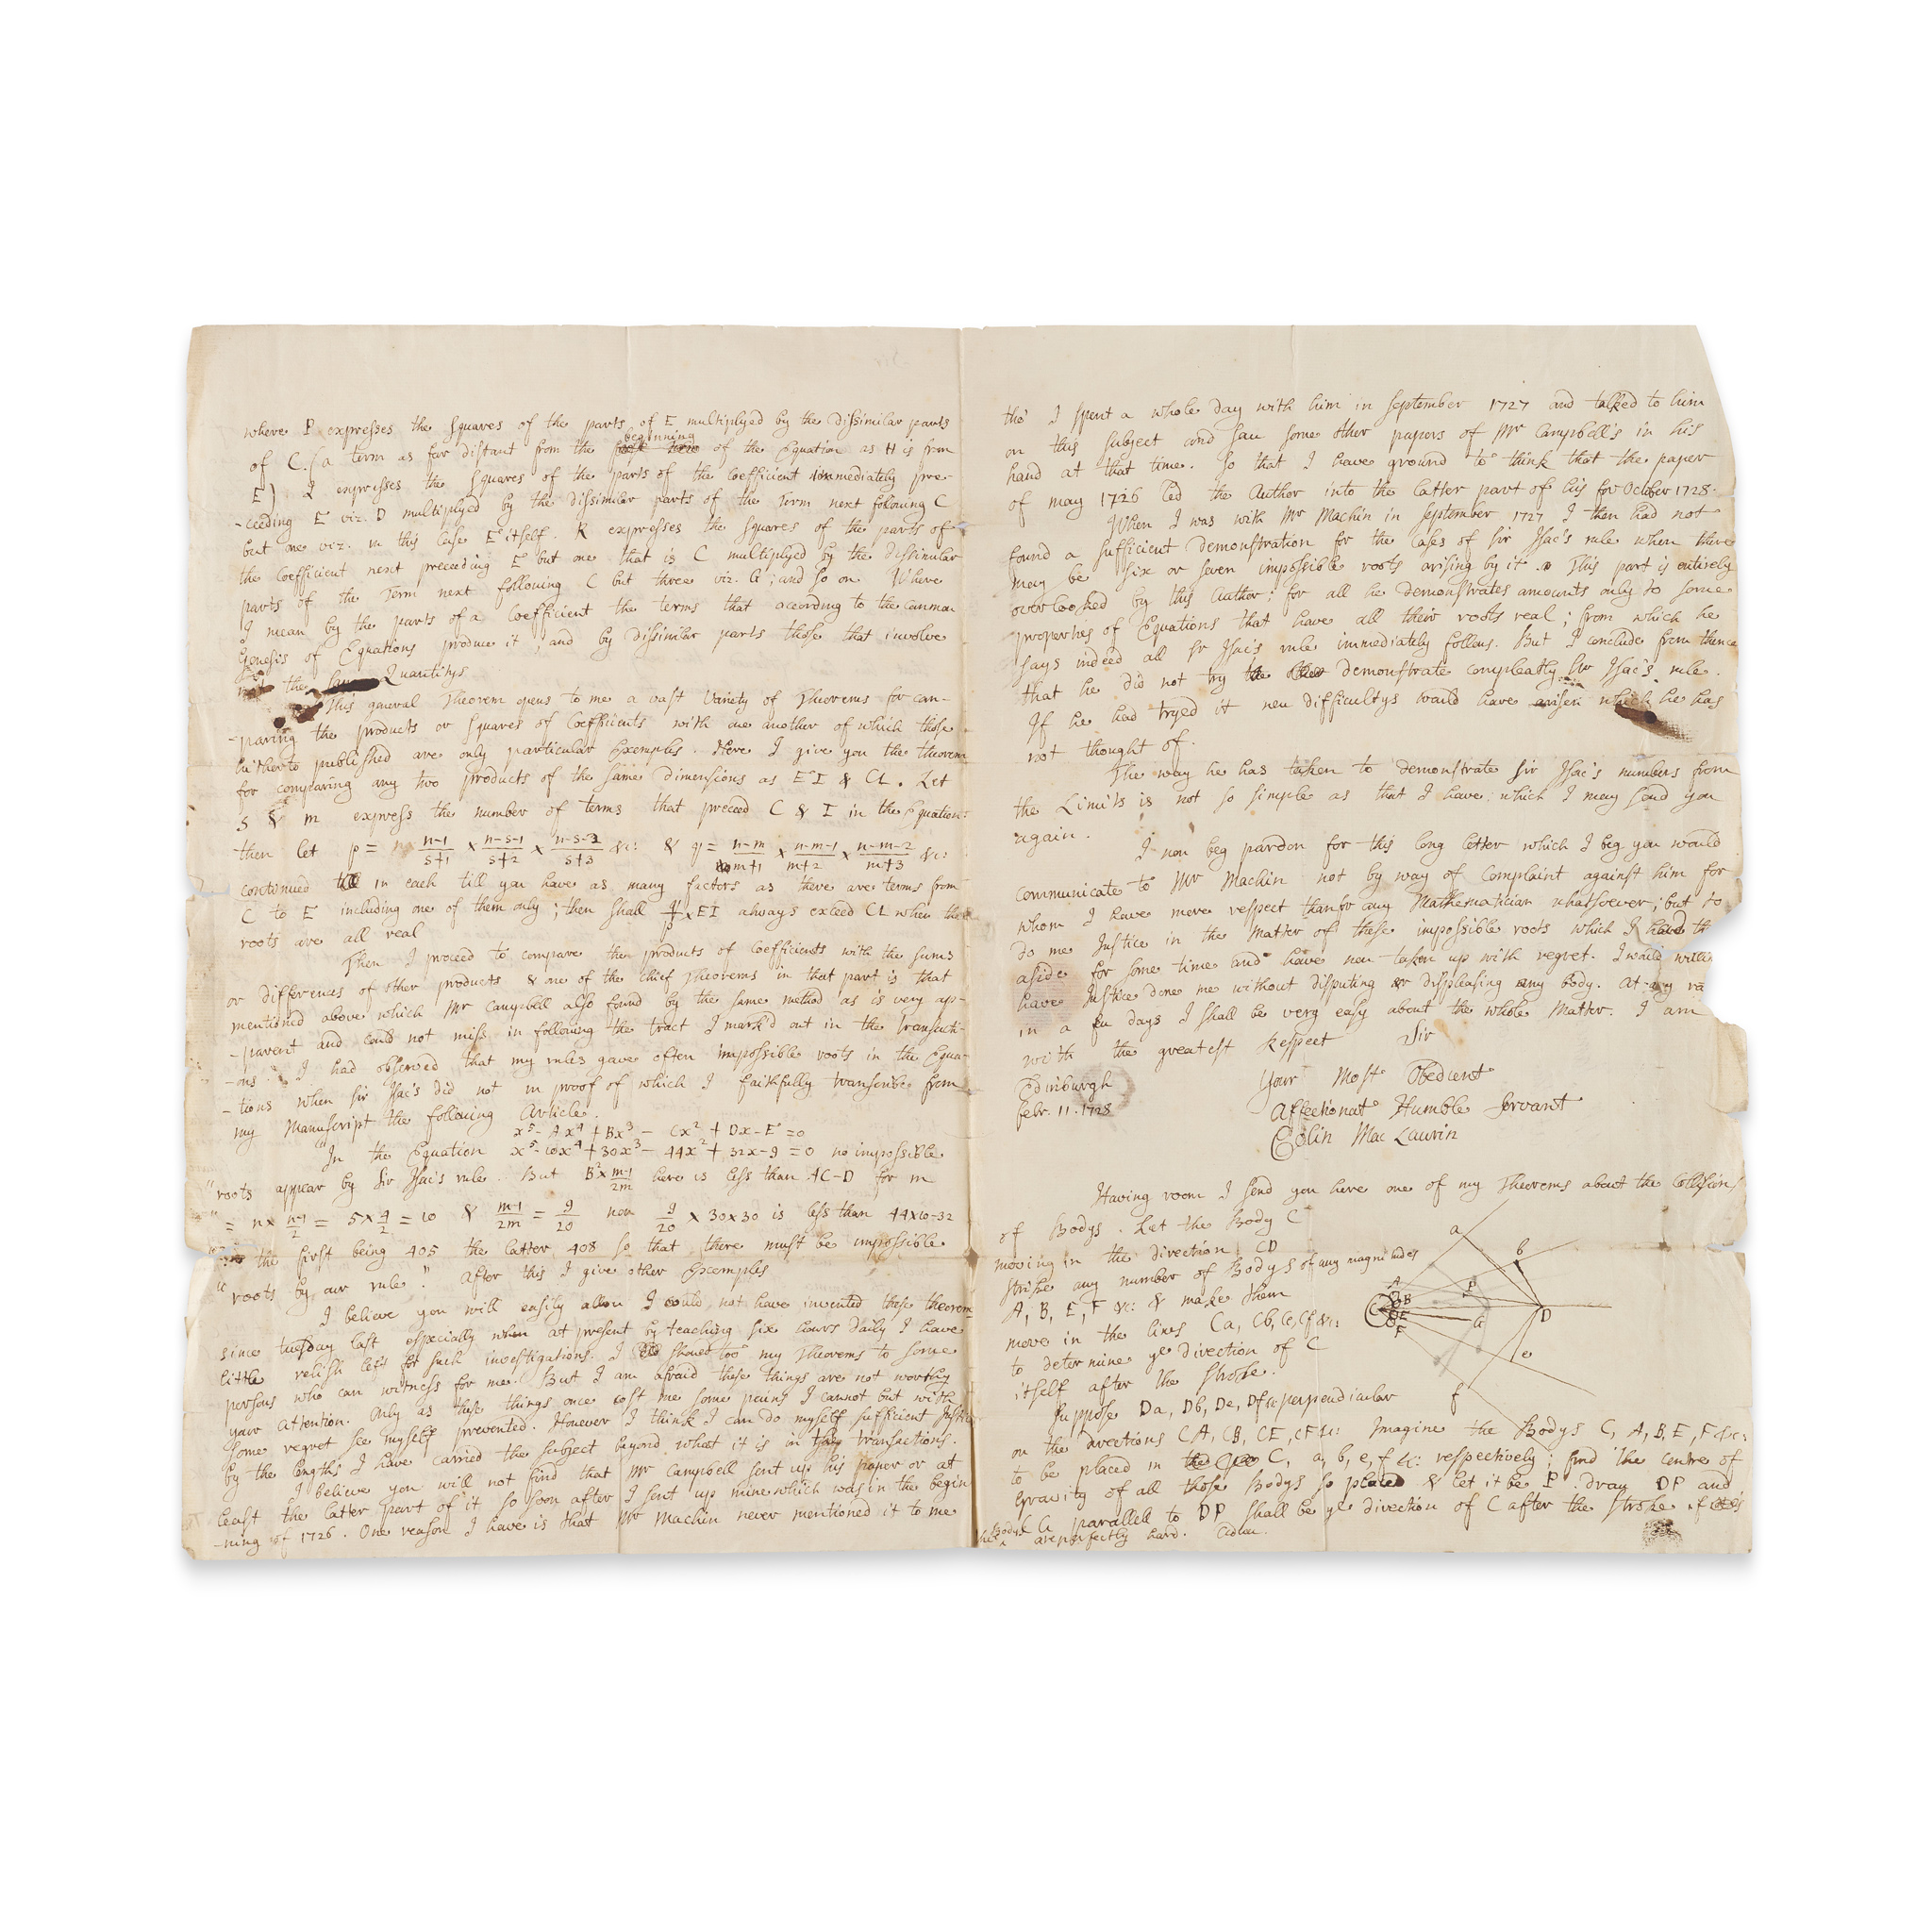 where P expresses the squares of the parts of E multiplyed by the dissimilar parts
of C. (a term as far distant from the beginning of the Equation as H is from
E) Q expresses the squares of the parts of the Coefficient immediately pre-
-ceeding E viz. D multiplyed by the dissimilar parts of the Term next following C
but one viz. in this Case E itself. R expresses the squares of the parts of
the Coefficient next preceeding E but one that is C multiplyed by the dissimilar
parts of the Term next following C but three viz. G; and so on. Where
I mean by the parts of a Coefficient the terms that according to the common
Genesis of Equations produce it, and by dissimilar parts those that involve
not the same Quantitys
This general Theorem opens to me a vast Variety of Theorems for com-
-paring the products or squares of Coefficients with one another of which those
hitherto published are only particular Exemples. Here I give you the theorem
for comparing any two products of the same Dimensions as EI & CL. Let
s & m express the number of terms that preceed C & I in the Equation
then let p = n-1/s+1 × n-s-1/s+2 × n-s-2/s+3 &c: & q = n-m/m+1 × n-m-1/m+2 × n-m-2/m+3 &c:
continued in each till you have as many factors as there are terms from
C to E including one of them only; then shall q/p × EI always exceed CL when the
roots are all real
Then I proceed to compare the products of Coefficients with the sums
or differences of other products & one of the chief Theorems in that part is that
mentioned above which Mr Campbell also found by the same method as is very ap-
-parent and could not miss in following the tract I mark'd out in the Transacti-
-ons. I had observed that my rules gave often impossible roots in the Equa-
-tions when Sir Isac's did not in proof of which I faithfully transcribe from
my Manuscript the following Article.
x⁵ - Ax⁴ + Bx³ - Cx² + Dx - E = 0
"In the Equation x⁵ - 10x⁴ + 30x³ - 44x² + 32x - 9 = 0 no impossible
"roots appear by Sir Isac's rule. But B² × m-1/2m here is less than AC-D for m
" = n × n-1/2 = 5 × 4/2 = 10 & m-1/2m = 9/20 now 9/20 × 30 × 30 is less than 44×10-32
" the first being 405 the latter 408 so that there must be impossible
" roots by our rule." After this I give other Exemples
I believe you will easily allow I could not have invented those theorems
since tuesday last especially when at present by teaching six hours daily I have
little relish left for such investigations. I shoued too my Theorems to some
persons who can witness for me. But I am afraid these things are not worthy
your attention. Only as these things once cost me some pains I cannot but with
some regret see myself prevented. However I think I can do myself sufficient Justice
by the lengths I have carried the subject beyond what it is in the transactions.
I believe you will not find that Mr Campbell sent up his paper or at
least the latter part of it so soon after I sent up mine which was in the begin
-ning of 1726. One reason I have is that Mr Machin never mentioned it to me
tho' I spent a whole day with him in September 1727 and talked to him
on this subject and saw some other papers of Mr Campbell's in his
hand at that time. So that I have ground to think that the paper
of may 1726 led the Author into the latter part of his for October 1728.
When I was with Mr Machin in September 1727 I then had not
found a sufficient Demonstration for the Cases of Sir Isac's rule when there
may be six or seven impossible roots arising by it. This part is entirely
overlooked by this Author; for all he demonstrates amounts only to some
properties of Equations that have all their roots real; from which he
says indeed all Sr Isac's rule immediately follows. But I conclude from thence
that he did not try to demonstrate compleatly Sir Isac's rule.
If he had tryed it new difficultys would have arisen which he has
not thought of.
The way he has taken to demonstrate Sir Isac's numbers from
the Limits is not so simple as that I have: which I may send you
again.
I now beg pardon for this long letter which I beg you would
communicate to Mr Machin not by way of Complaint against him for
whom I have more respect than for any Mathematician whatsoever; but to
do me Justice in the Matter of these impossible roots which I have th
aside for some time and have now taken up with regret. I would willi
have Justice done me without disputing or displeasing any body. At any ra
in a few days I shall be very easy about the whole Matter. I am
with the greatest Respect Sir
Your Most Obedient
Edinburgh
Febr. 11. 1728
Affectionat Humble Servant
Colin Mac Laurin
Having room I send you here one of my Theorems about the Collision
of Bodys. Let the Body C
moving in the direction CD
strike any number of Bodys of any magnitudes
A, B, E, F &c: & make them
move in the lines Ca, Cb, Ce, Cf &c:
to determine ye direction of C
itself after the stroke.
a
b
A
B
P
C
E
F
G
D
e
f
Suppose Da, Db, De, Df &c perpendicular
on the directions CA, CB, CE, CF &c: Imagine the Bodys C, A, B, E, F &c:
to be placed in C, a, b, e, f &c: respectively; find the centre of
Gravity of all those Bodys so placed & let it be P. draw DP and
CG parallell to DP shall be ye direction of C after the stroke if
the Bodys are perfectly hard. Adieu.